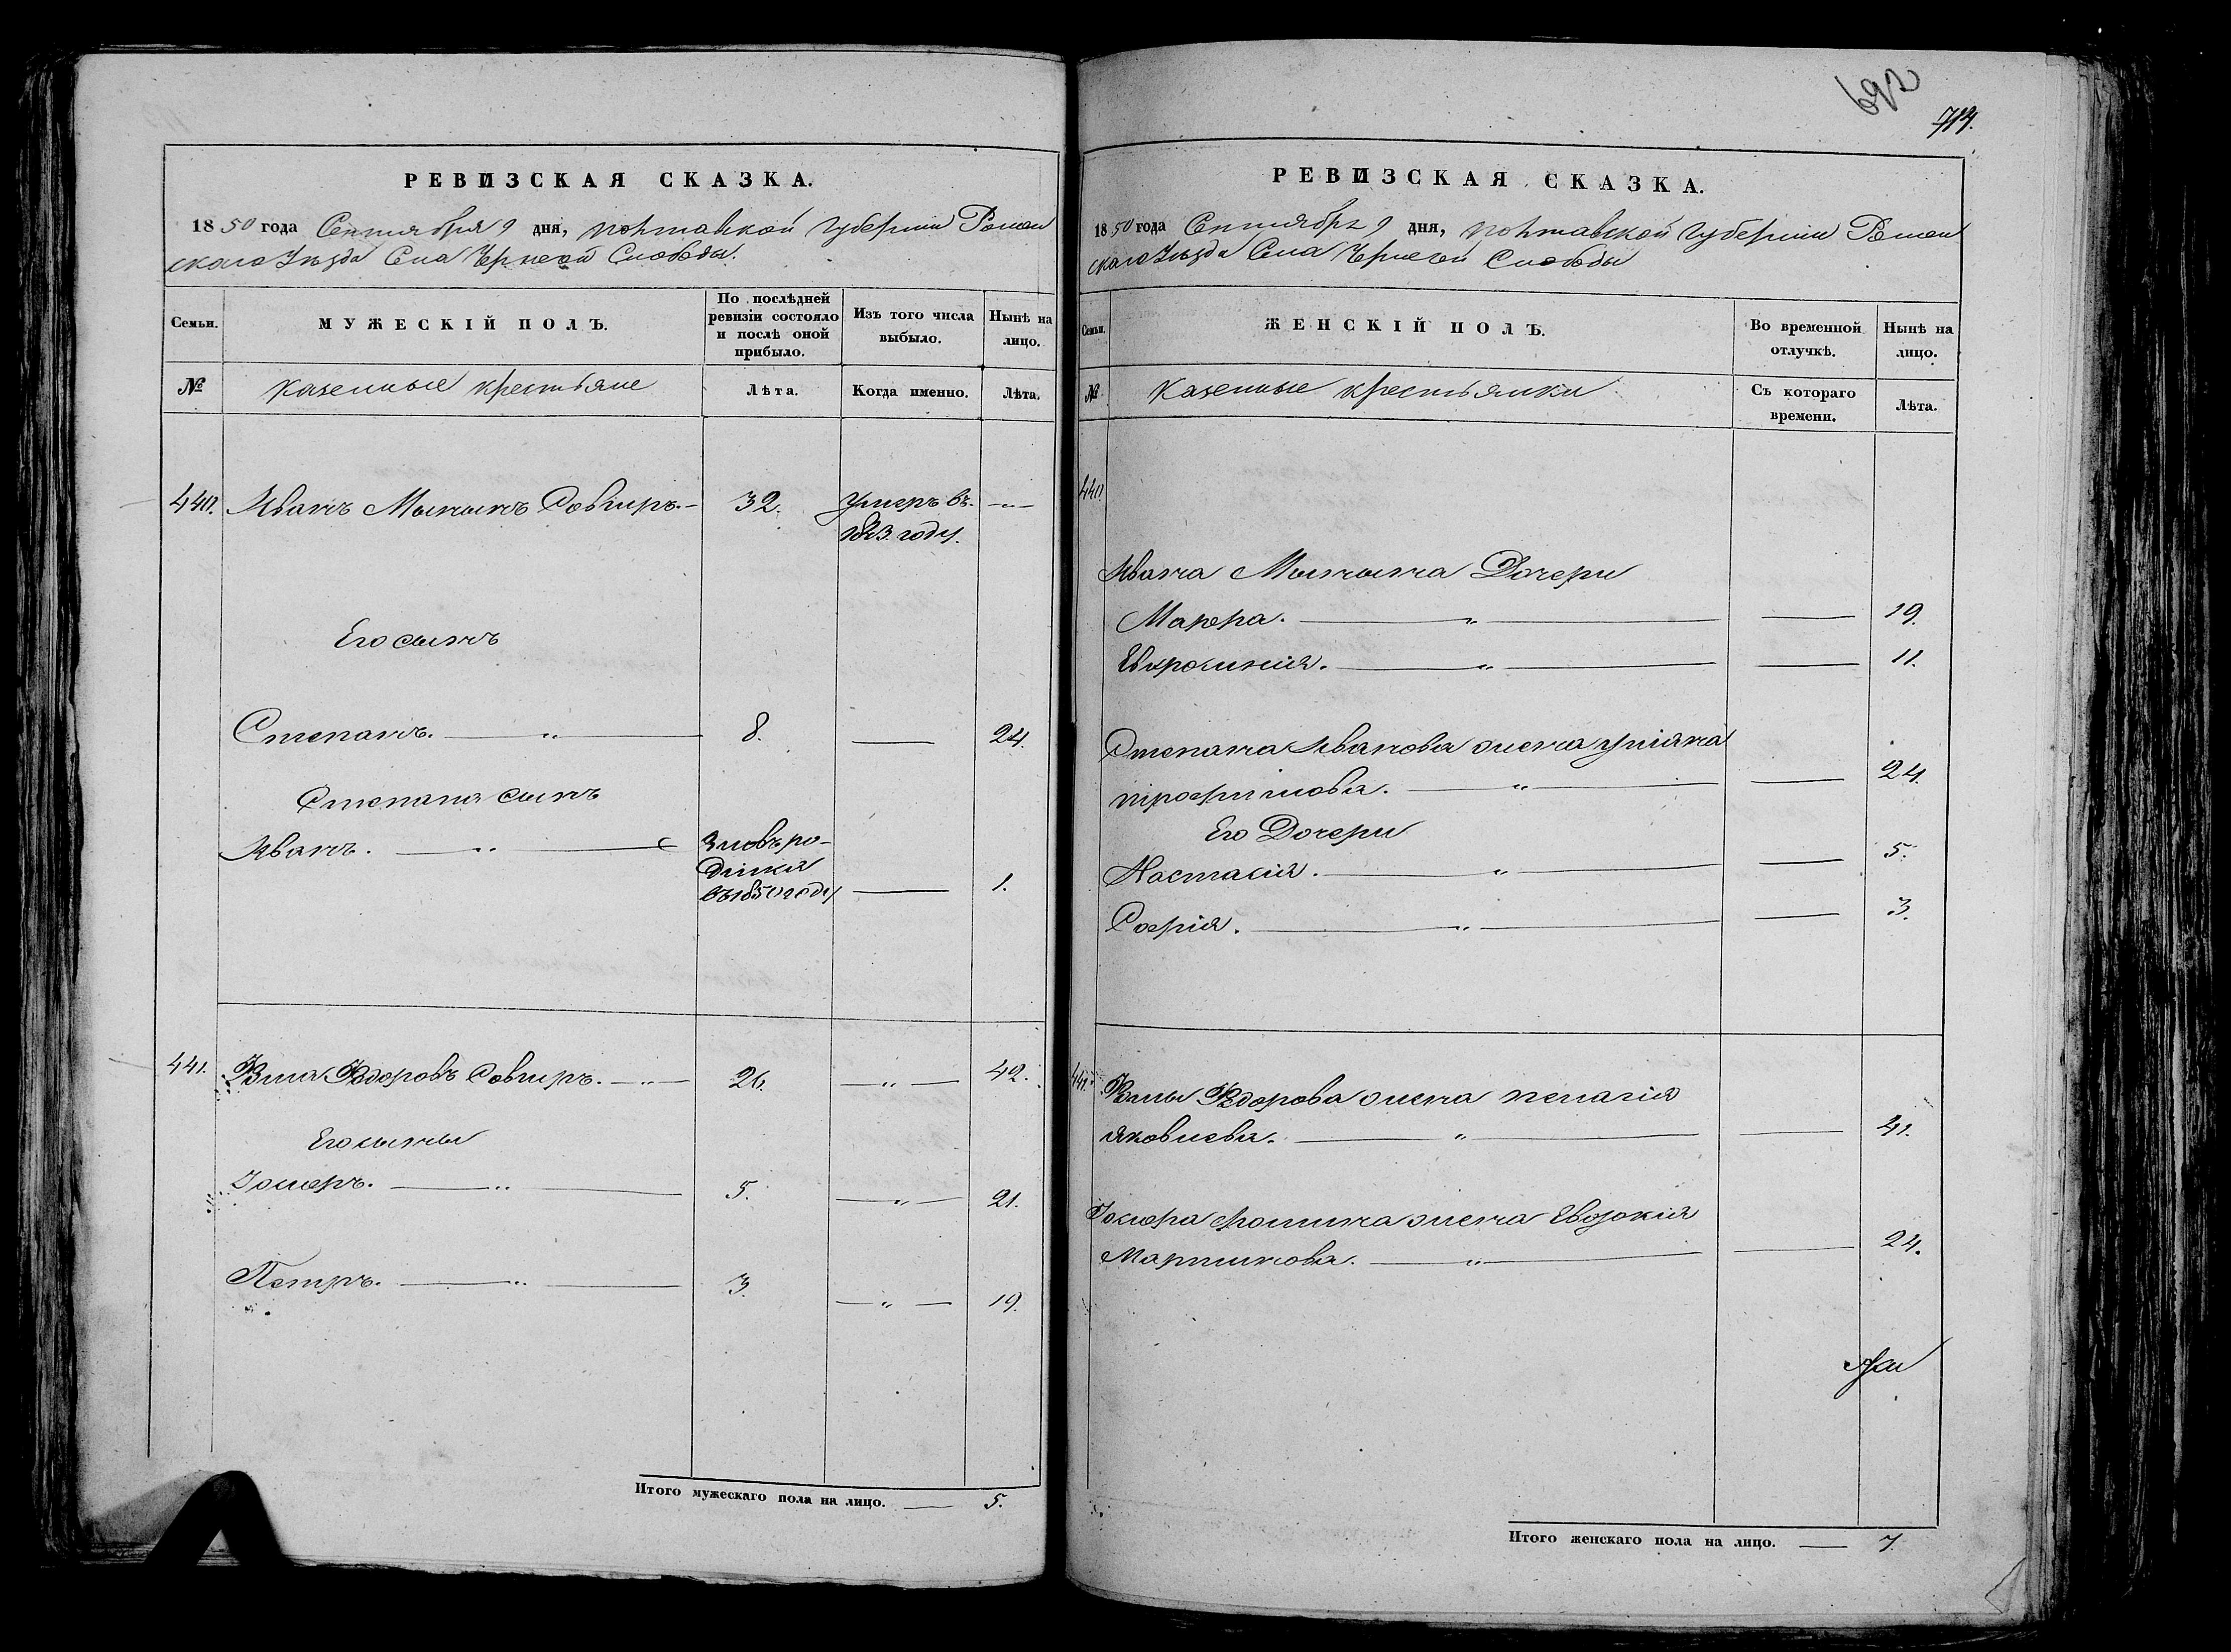 РЕВИЗСКАЯ СКАЗКА.
1850 года Сентября 9 дня, Полтавской Губернии Ромен
скаго Уѣзда Села Чернеей Слободы.
Семьи.
МУЖЕСКІЙ ПОЛЪ.
По послѣдней ревизіи состояло и послѣ оной прибыло.
Изъ того числа выбыло.
Нынѣ на лицо.
№
Казенные крестьяне
Лѣта.
Когда именно.
Лѣта.
440. Иванъ Мининъ Совгиръ. 32. Умеръ въ —
1843. году.
Его сынъ
Степанъ. — „ — 8. — 24.
Степана сынъ
Иванъ. — „ — Зновъ ро-
дился
въ 1850 году — 1.
441. Фома Федоровъ Совгиръ. — „ — 26. — „ — 42.
Его сыны
Іосифъ. — „ — 5. — „ — 21.
Петръ. — „ — 3. — „ — 19.
Итого мужескаго пола на лицо. — 5.
692
714.
РЕВИЗСКАЯ СКАЗКА.
1850 года Сентября 9 дня, Полтавской Губерніи Ромен
скаго Уѣзда Села Чернеей Слободы
Семьи.
ЖЕНСКІЙ ПОЛЪ.
Во временной отлучкѣ.
Нынѣ на лицо.
№
Казенные крестьянки
Съ котораго времени.
Лѣта.
440
Ивана Минина Дочери
Марфа. — „ — — 19.
Евфросинія. — „ — — 11.
Степана Иванова жена Уліяна
Трофимова. — „ — — 24.
Его Дочери
Настасія. — „ — — 5.
Софія. — „ — — 3.
441. Фомы Федорова жена Пелагія
Яковлева. — „ — — 41.
Іосифа Фомина жена Евдокія
Мартинова. — „ — — 24.
Итого женскаго пола на лицо. — 7.